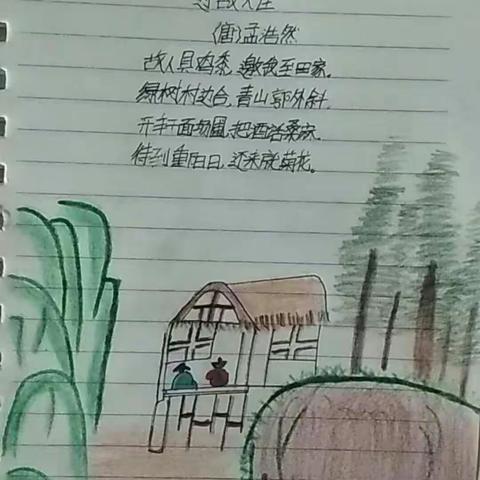 过故人庄
(唐)孟浩然
故人具鸡黍,邀我至田家。
绿树村边合,青山郭外斜。
开轩面场圃,把酒话桑麻。
待到重阳日,还来就菊花。